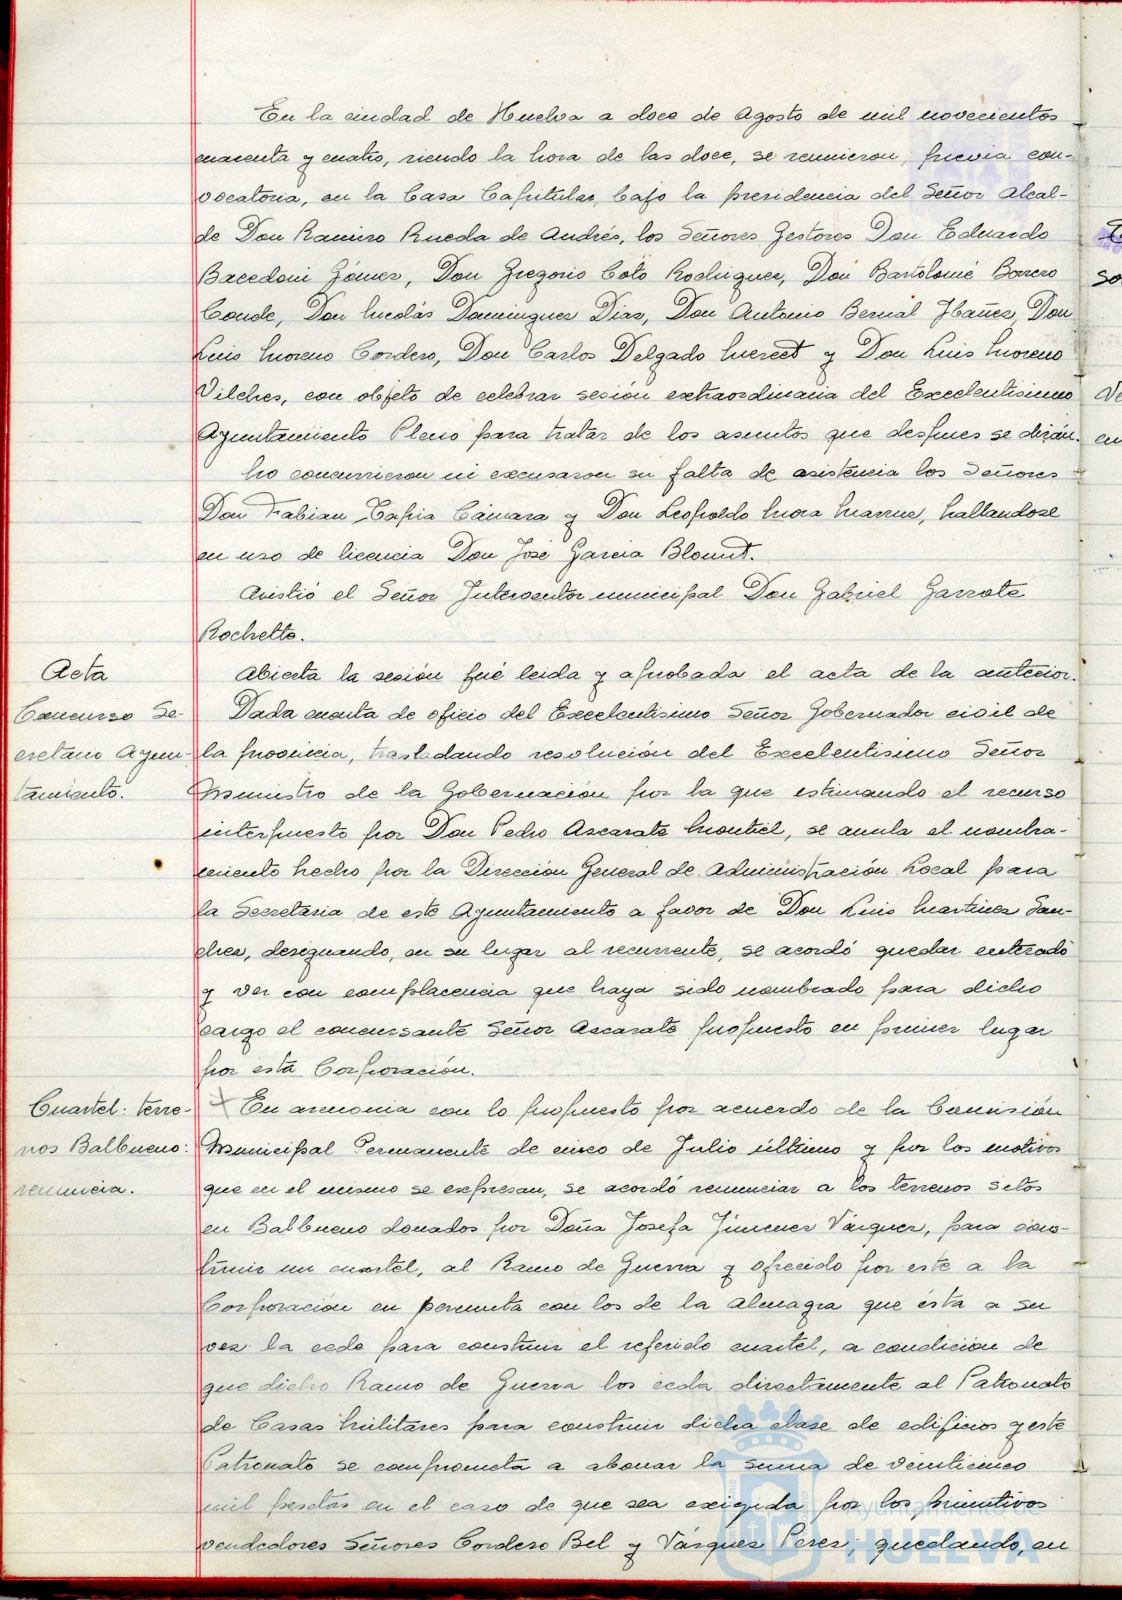 En la ciudad de Huelva a doce de Agosto de mil novecientos
cuarenta y cuatro, siendo la hora de las doce, se reunieron, previa con-
vocatoria, en la Casa Capitular, bajo la presidencia del Señor Alcal-
de Don Ramiro Rueda de Andrés, los Señores Gestores Don Eduardo
Bacedoni Gómez, Don Gregorio Coto Rodriguez, Don Bartolomé Borrero
Conde, Don Nicolás Dominguez Diaz, Don Antonio Bernal Ibañez, Don
Luis Moreno Cordero, Don Carlos Delgado y Don Luis Moreno
Vilches, con objeto de celebrar sesión extraordinaria del Excelentisimo
Ayuntamiento Pleno para tratar de los asuntos que despues se dirán.
No concurrieron ni excusaron su falta de asistencia los Señores
Don Fabian Tapia Cámara y Don Leopoldo Mora, hallandose
en uso de licencia Don José Garcia Blount.
Asistió el Señor Interventor municipal Don Gabriel Garrote
Rochette.
Acta
Abierta la sesión fué leida y aprobada el acta de la anterior.
Concurso Se-
cretario Ayun-
tamiento.
Dada cuenta de oficio del Excelentisimo Señor Gobernador civil de
la provincia, trasladando resolución del Excelentisimo Señor
Ministro de la Gobernación por la que estimando el recurso
interpuesto por Don Pedro Ascarate Montiel, se anula el nombra-
miento hecho por la Dirección General de Administración Local para
la Secretaria de este Ayuntamiento a favor de Don Luis Martinez San-
chez, designando, en su lugar al recurrente, se acordó quedar enterado
y ver con complacencia que haya sido nombrado para dicho
cargo el concursante Señor Ascarate propuesto en primer lugar
por esta Corporación.
Cuartel: terre-
nos Balbueno:
renuncia.
En armonia con lo propuesto por acuerdo de la Comisión
Municipal Permanente de cinco de Julio último y por los motivos
que en el mismo se expresan, se acordó renunciar a los terrenos sitos
en Balbueno donados por Doña Josefa Jimenez Vázquez, para cons-
truir un cuartel, al Ramo de Guerra y ofrecido por este a la
Corporación en permuta con los de la Almagra que ésta a su
vez la cede para construir el referido cuartel, a condición de
que dicho Ramo de Guerra los ceda directamente al Patronato
de Casas Militares para construir dicha clase de edificios y este
Patronato se comprometa a abonar la suma de veinticinco
mil pesetas en el caso de que sea exigida por los primitivos
vendedores Señores Cordero Bel y Vázquez Perez, quedando, en
Ayuntamiento de
HUELVA